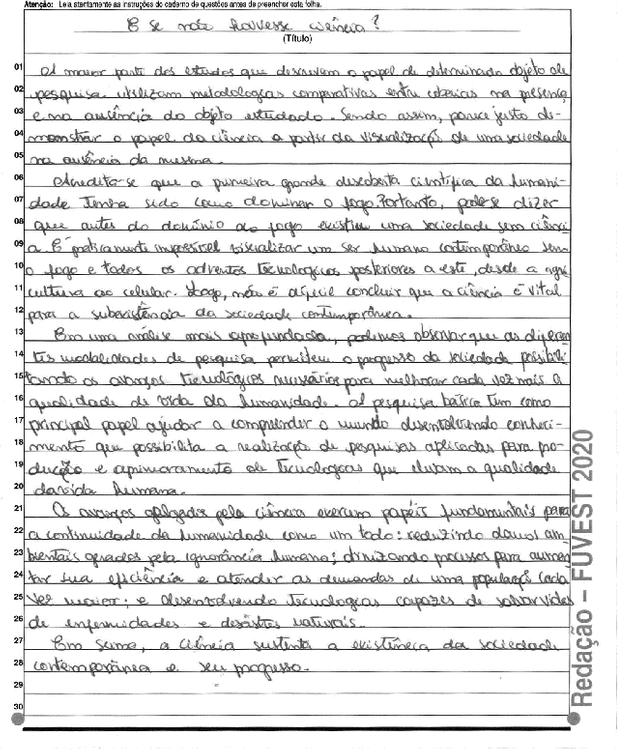 Atenção: Leia atentamente as instruções do caderno de questões antes de preencher esta folha.
E se não houvesse ciência?
(Título)
01 A maior parte dos estudos que descrevem o papel de determinado objeto de
02 pesquisa utilizam metodologias comparativas entre na presença
03 e na ausência do objeto estudado. Sendo assim, parece justo de-
04 monstrar o papel da ciência a partir da visualização de uma sociedade
05 na ausência da mesma.
06 Acredita-se que a primeira grande descoberta científica da humani-
07 dade tenha sido como dominar o fogo. Portanto, pode-se dizer
08 que antes do domínio do fogo existiu uma sociedade sem ciênci-
09 a. É praticamente impossível visualizar um ser humano contemporâneo sem
10 o fogo e todos os adventos tecnológicos posteriores a este, desde a agri
11 cultura ao celular. Logo, não é difícil concluir que a ciência é vital
12 para a subsistência da sociedade contemporânea.
13 Em uma análise mais aprofundada, podemos observar que as diferen
14 tes modalidades de pesquisa permitem o progresso da sociedade possibili
15 tando os avanços tecnológicos necessários para melhorar cada vez mais a
16 qualidade de vida da humanidade. A pesquisa básica tem como
17 principal papel ajudar a compreender o mundo desenvolvendo conheci-
18 mento que possibilita a realização de pesquisas aplicadas para pro-
19 dução e aprimoramento de tecnologias que elevam a qualidade
20 da vida humana.
21 Os avanços pela ciência exercem papéis fundamentais para
22 a continuidade da humanidade como um todo: reduzindo danos am
23 bientais gerados pela ignorância humana; dinamizando processos para aumen
24 tar sua eficiência e atender as demandas de uma população cada
25 vez maior; e desenvolvendo tecnologias capazes de salvar vidas
26 de enfermidades e desastres naturais.
27 Em suma, a ciência sustenta a existência da sociedade
28 contemporânea e seu progresso.
29
30
Redação – FUVEST 2020